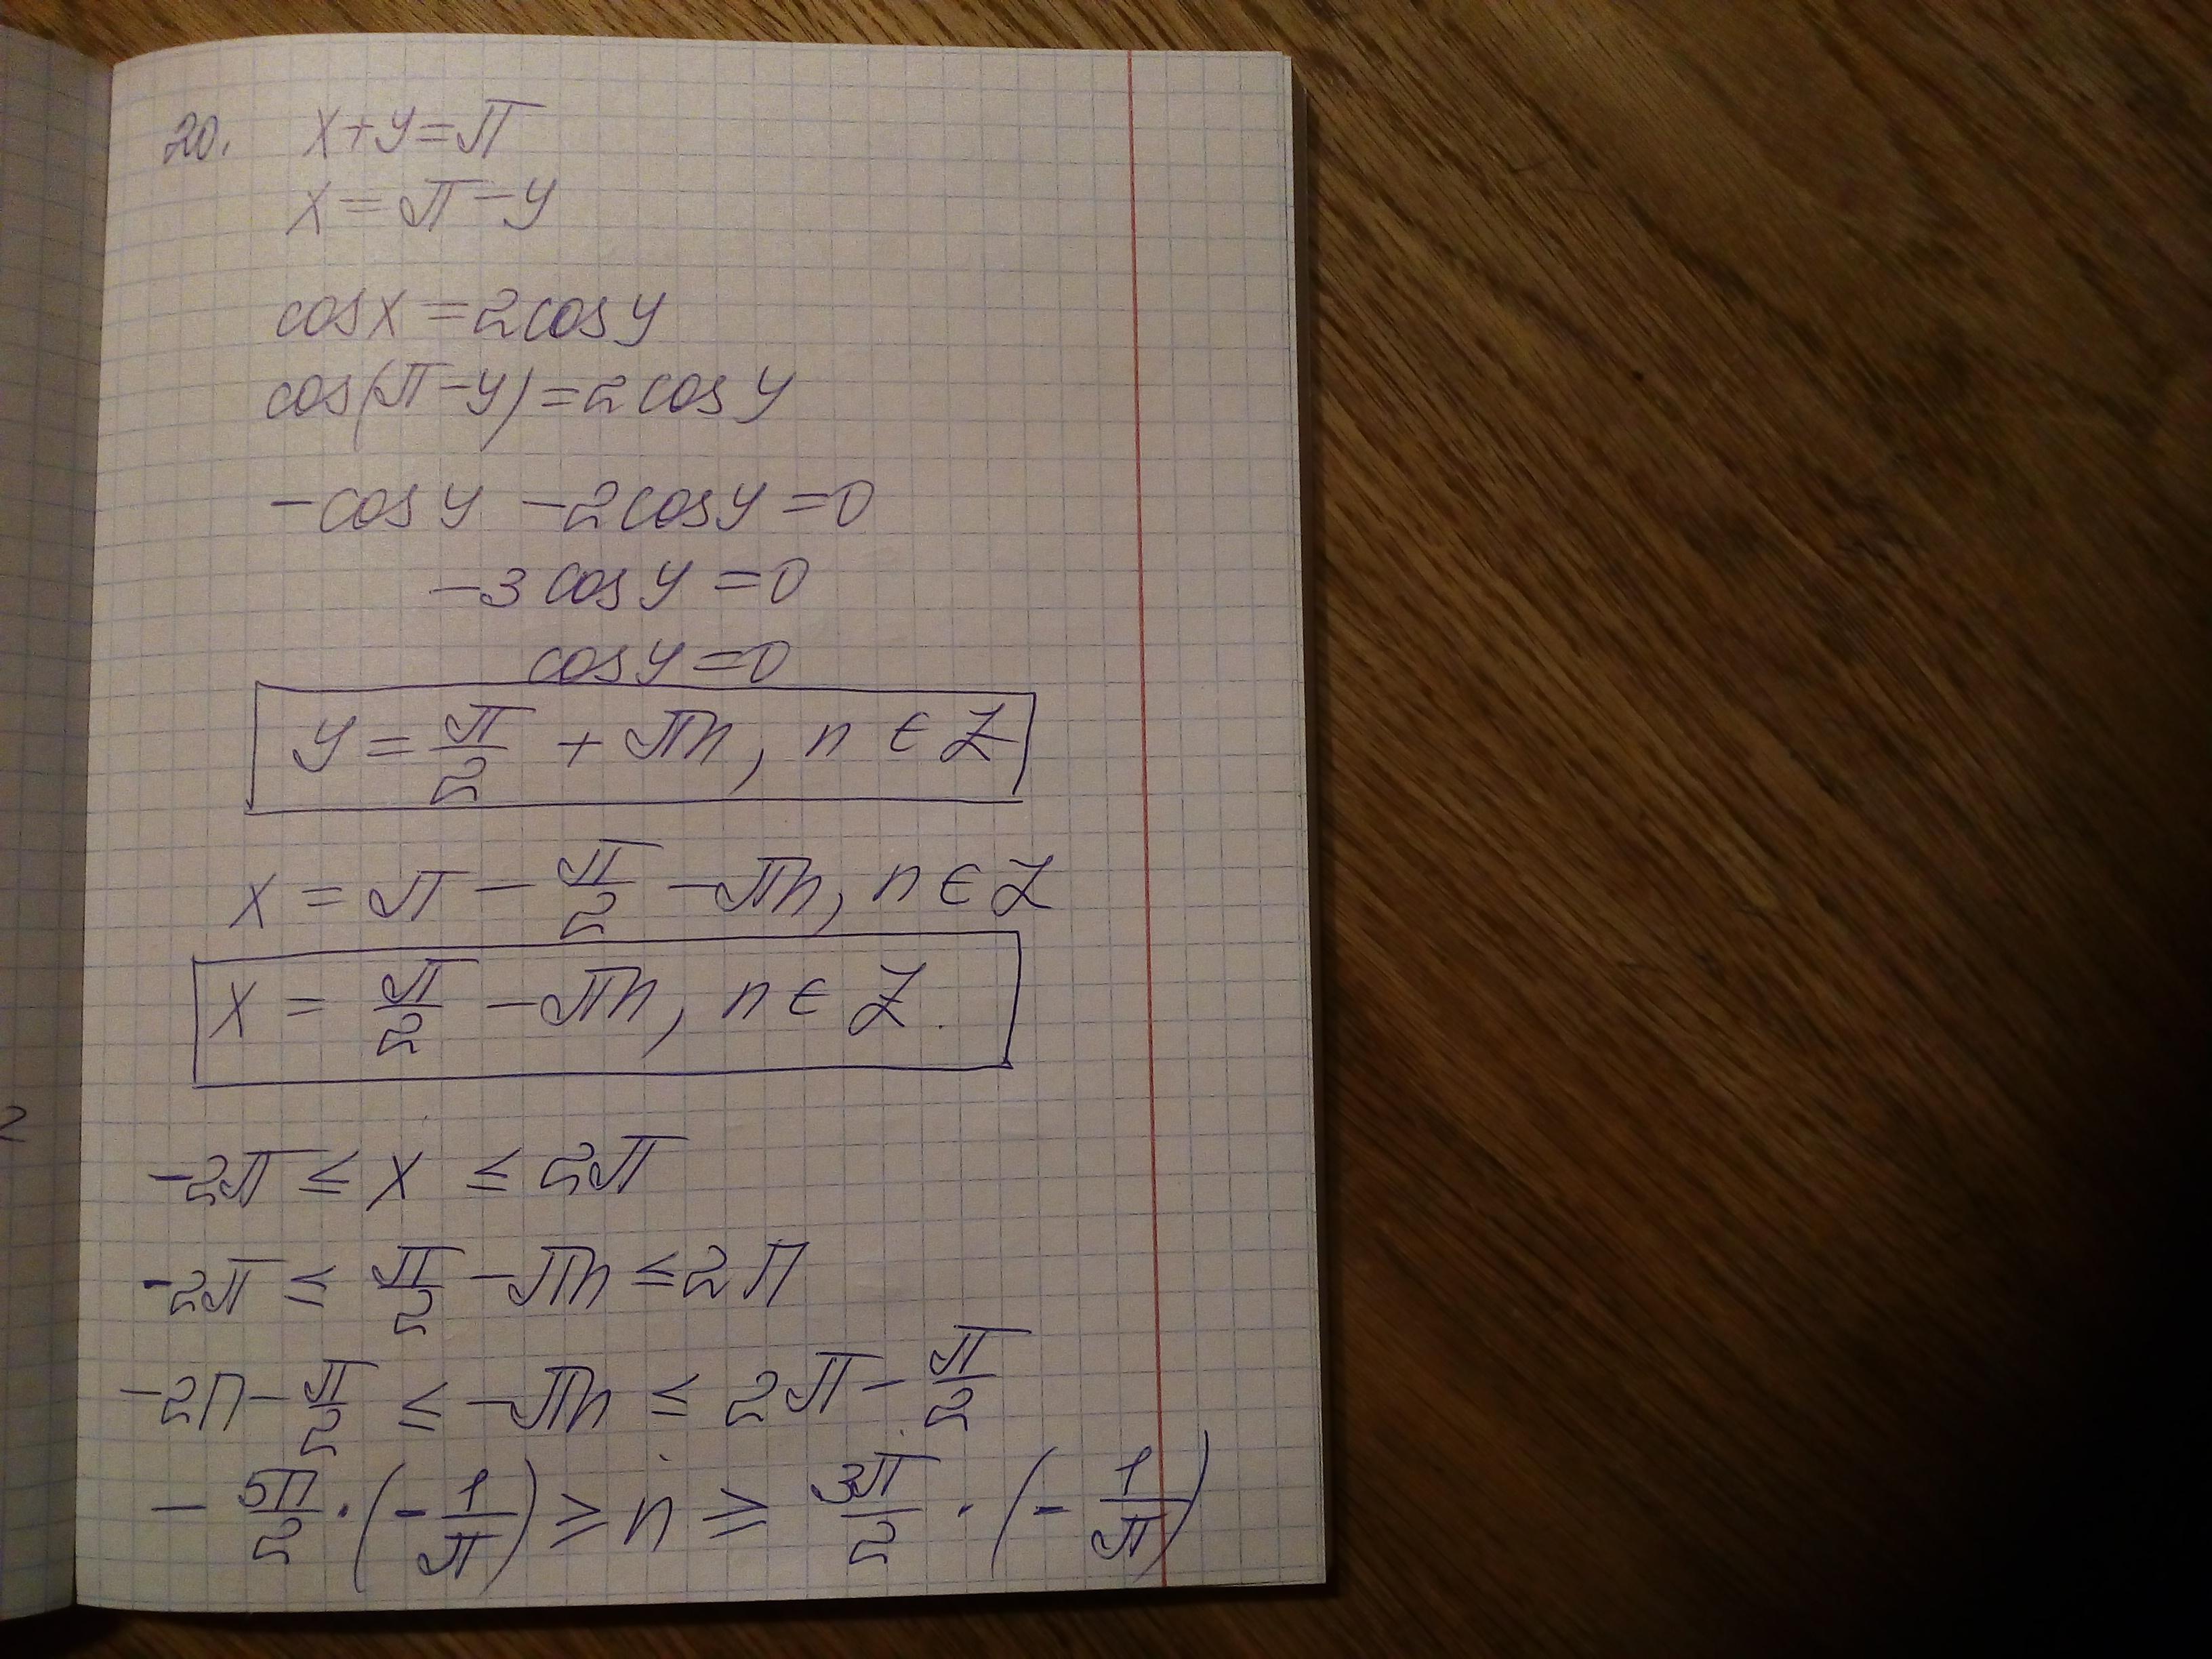 20. x+y=π
x=π-y
cosx=2cosy
cos(π-y)=2cosy
-cosy -2cosy=0
-3cosy=0
cosy=0
y=π/2 + πn, n∈Z
x = π - π/2 - πn, n∈Z
x = π/2 - πn, n∈Z.
-2π ≤ x ≤ 2π
-2π ≤ π/2 - πn ≤ 2π
-2π - π/2 ≤ -πn ≤ 2π - π/2
- 5π/2 · (- 1/π) ≥ n ≥ 3π/2 · (- 1/π)
2